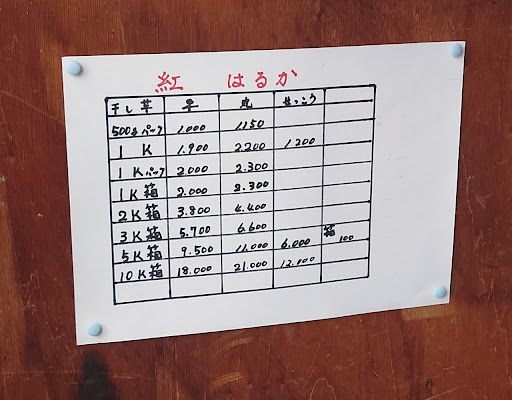 紅 はるか
干し芋 平 丸 せっこう
500gパック 1.000 1.150
1 K 1.900 2.200 1.200
1 Kパック 2.000 2.300
1K箱 2.000 2.300
2K箱 3.800 4.400
3K箱 5.700 6.600 箱
5K箱 9.500 11.000 6.000 100
10K箱 18.000 21.000 12.000